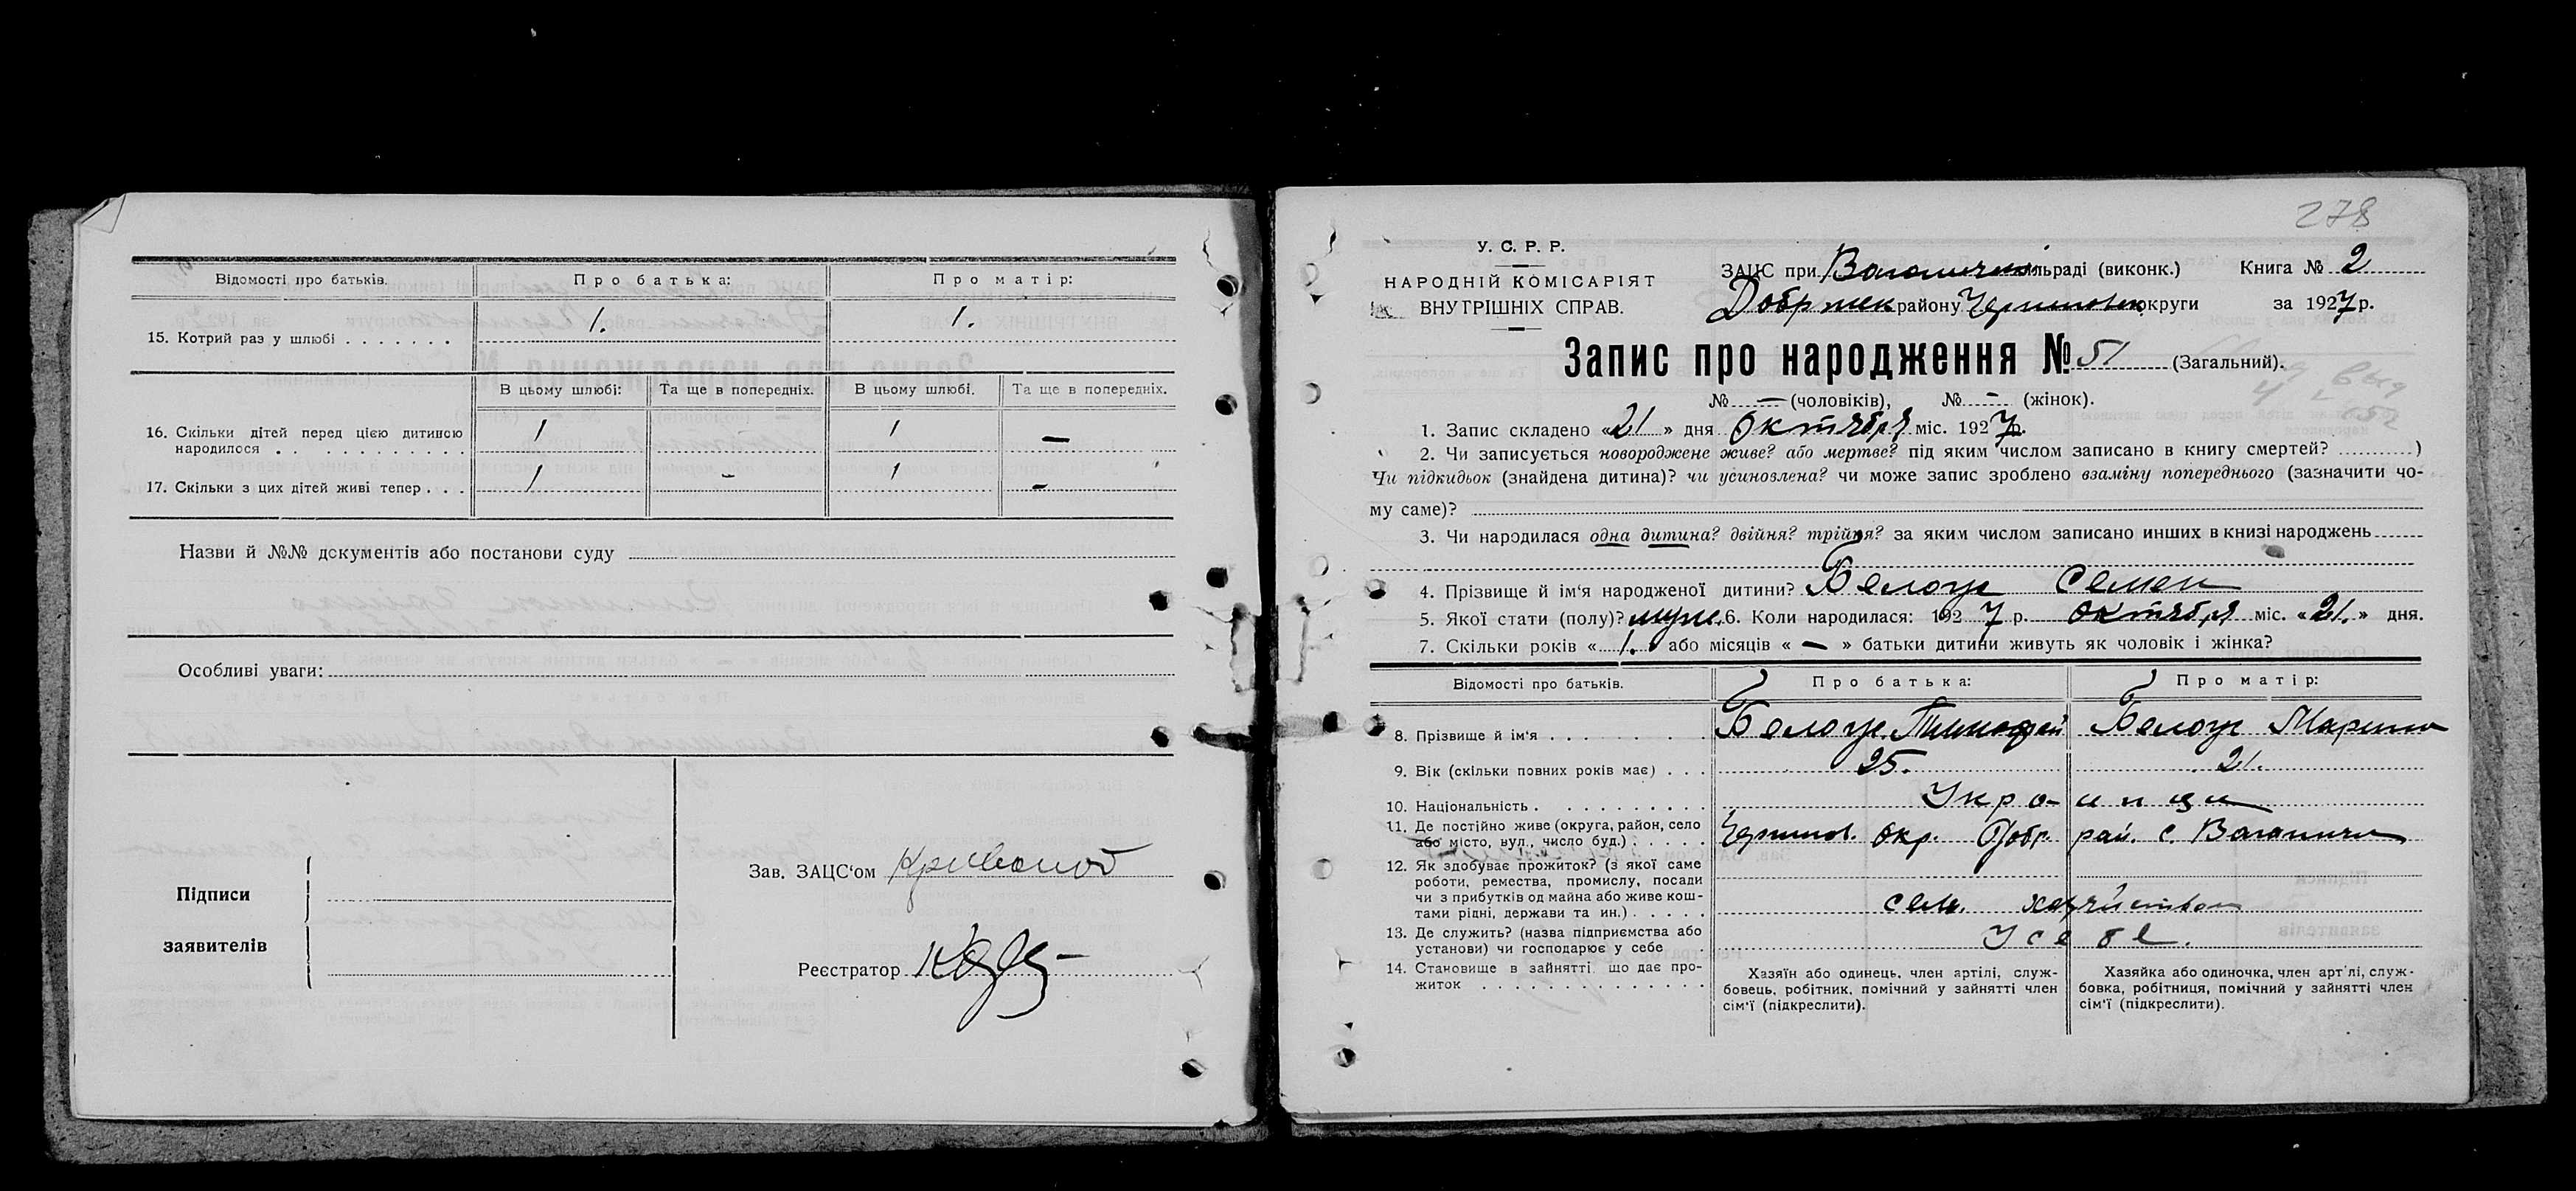 Відомості про батьків. Про батька: Про матір:
15. Котрий раз у шлюбі . . . . . . . 1. 1.
В цьому шлюбі: Та ще в попередніх. В цьому шлюбі. Та ще в попередніх.
16. Скільки дітей перед цією дитиною
народилося . . 1 1 —
17. Скільки з цих дітей живі тепер . . . 1 - 1 -
Назви й №№ документів або постанови суду
Особливі уваги:
Підписи
заявителів
Зав. ЗАЦС'ом
Реєстратор
278
У. С. Р. Р.
НАРОДНІЙ КОМІСАРІЯТ
ВНУТРІШНІХ СПРАВ.
ЗАЦС при сільраді (виконк.) Книга № 2
району округи за 1927 р.
Запис про народження № 51 (Загальний).
№ — (чоловіків), № - (жінок).
1. Запис складено «21» дня Октября міс. 1927 р.
2. Чи записується новороджене живе? або мертве? під яким числом записано в книгу смертей? ............)
Чи підкидьок (знайдена дитина)? чи усиновлена? чи може запис зроблено взаміну попереднього (зазначити чо-
му саме)?
3. Чи народилася одна дитина? двійня? трійня? за яким числом записано инших в книзі народжень
4. Прізвище й ім'я народженої дитини? Белоус Семен
5. Якої стати (полу)? муж. 6. Коли народилася: 1927 р. Октября міс. «21.» дня.
7. Скільки років «1.» або місяців « — » батьки дитини живуть як чоловік і жінка?
Відомості про батьків. Про батька: Про матір:
8. Прізвище й ім'я . . . . . . . . Белоус Тимофей Белоус Марина
9. Вік (скільки повних років має) . . . 25. 21.
10. Національність . . . . . . . . . . Укра-инци
11. Де постійно живе (округа, район, село
або місто, вул., число буд.) . . . . . окр. Добр. рай. с.
12. Як здобуває прожиток? (з якої саме
роботи, ремества, промислу, посади
чи з прибутків од майна або живе кош-
тами рідні, держави та ин.) . . . . . сель. хозяйством
13. Де служить? (назва підприємства або
установи) чи господарює у себе . У себе.
14. Становище в зайнятті, що дає про-
житок . . . . . . . . . . . . . .
Хазяїн або одинець, член артілі, служ-
бовець, робітник, помічний у зайнятті член
сім'ї (підкреслити).
Хазяйка або одиночка, член арт'лі, служ-
бовка, робітниця, помічний у зайнятті член
сім'ї (підкреслити).